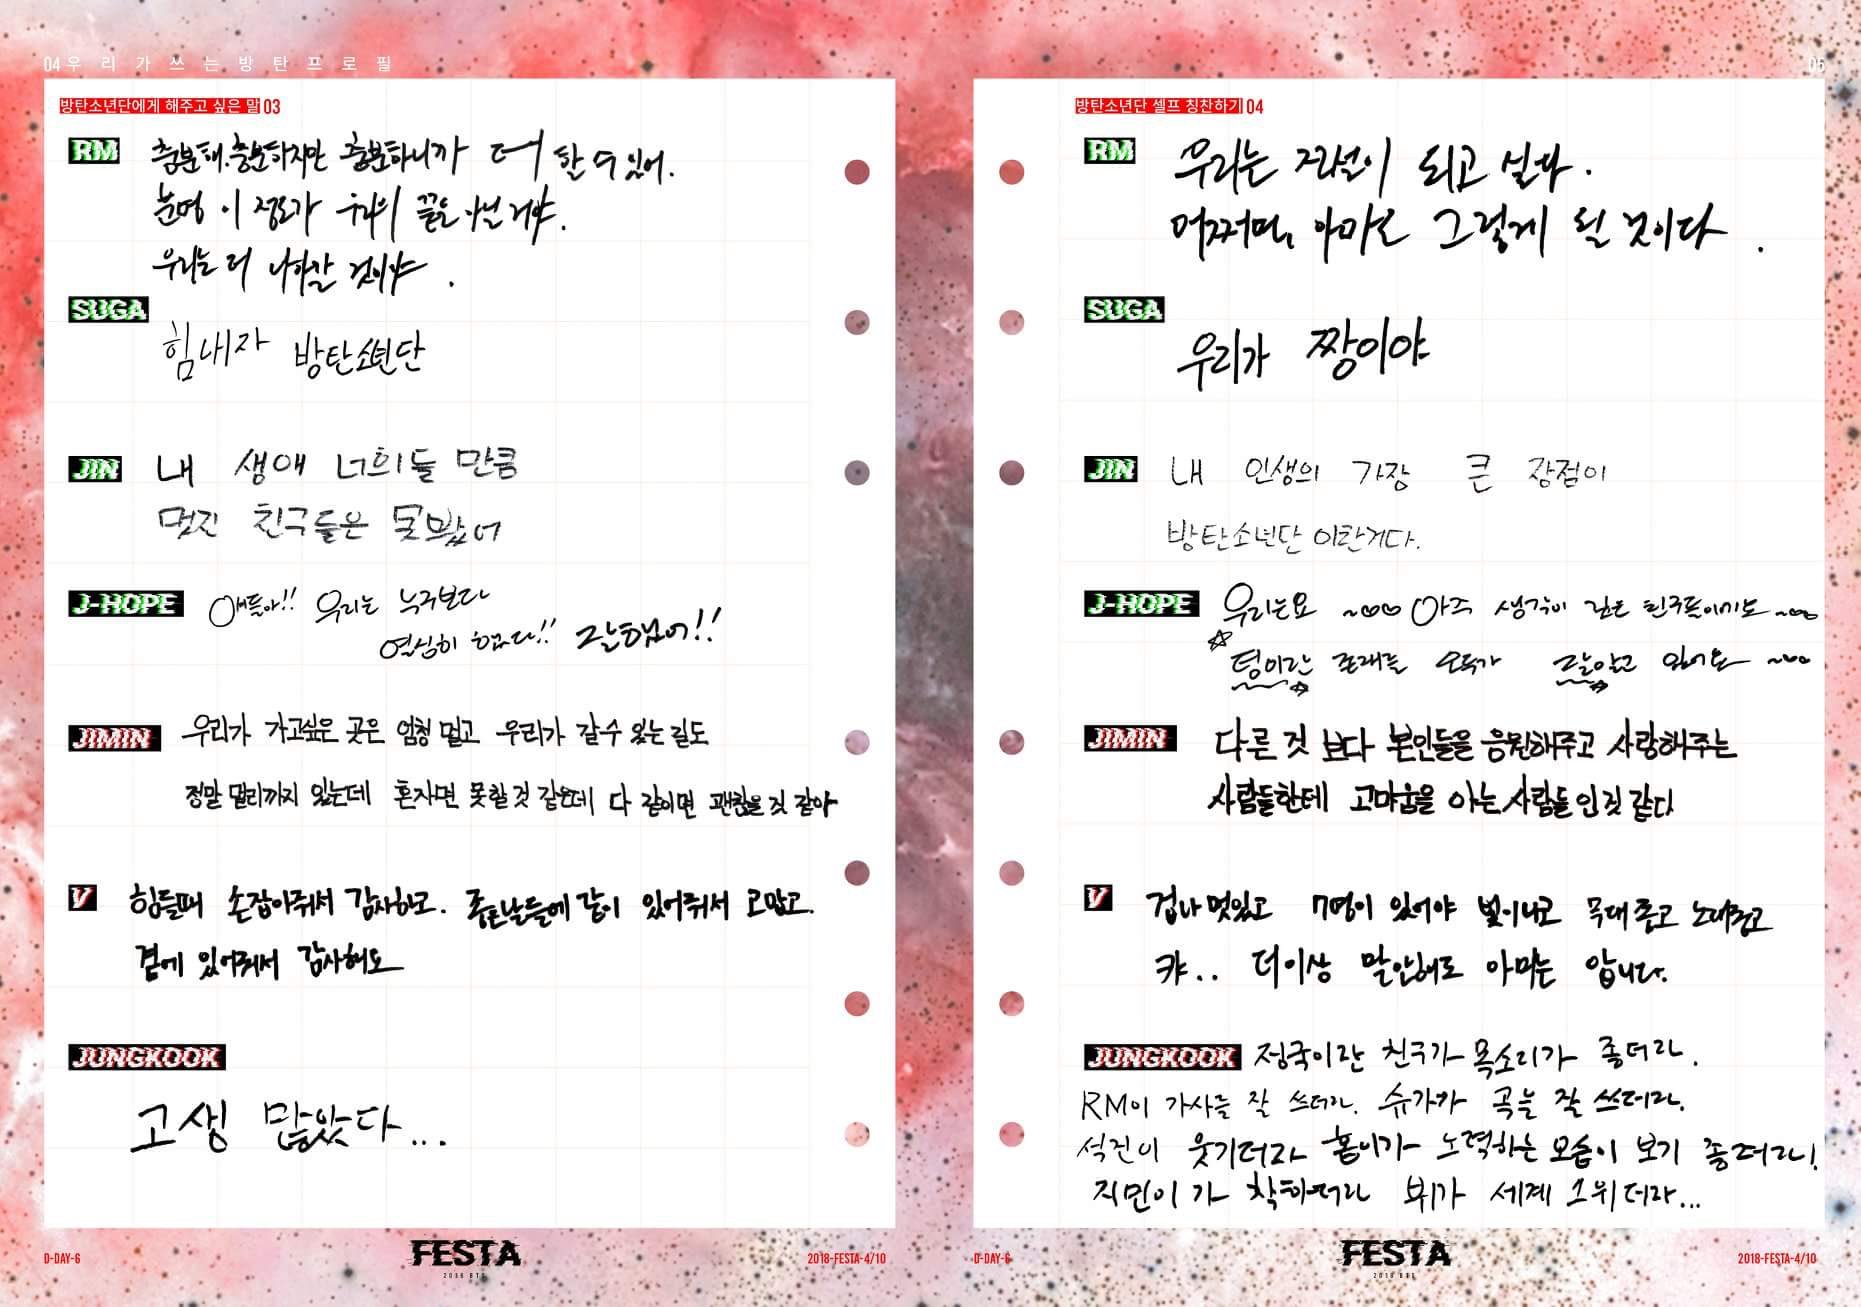 04 우리가 쓰는 방탄 프로필
방탄소년단에게 해주고 싶은 말 03
RM
충분해. 충분하지만 충분하니까 더 할 수 있어.
분명 이 정도가 우리의 끝은 아닐 거야.
우리는 더 나아갈 것이야.
SUGA
힘내자 방탄소년단
JIN
내 생애 너희들 만큼
멋진 친구들은 못봤어
J-HOPE
애들아!! 우리는 누구보다
열심히 했다!! 잘했어!!
JIMIN
우리가 가고싶은 곳은 엄청 멀고 우리가 갈 수 있는 길도
정말 멀리까지 있는데 혼자면 못할 것 같은데 다 같이면 괜찮을 것 같아
V
힘들때 손잡아줘서 감사하고. 좋은날들에 같이 있어줘서 고맙고.
곁에 있어줘서 감사해요
JUNGKOOK
고생 많았다...
D-DAY-6
FESTA
2018 BTS
2018-FESTA-4/10
05
방탄소년단 셀프 칭찬하기 04
RM
우리는 전설이 되고 싶다.
어쩌면, 아마도 그렇게 될 것이다.
SUGA
우리가 짱이야
JIN
내 인생의 가장 큰 장점이
방탄소년단 이란거다.
J-HOPE
우리는요 ~∞ 아주 생각이 깊은 친구들이기도 ~∞
☆ 텅이란 존재를 모두가 잘 알고 있어요 ~∞
JIMIN
다른 것 보다 본인들을 응원해주고 사랑해주는
사람들한테 고마움을 아는 사람들인 것 같다
V
겁나 멋있고 7명이 있어야 빛이나고 무대좋고 노래좋고
캬.. 더이상 말안해도 아미는 압니다.
JUNGKOOK
정국이란 친구가 목소리가 좋더라.
RM이 가사를 잘 쓰더라. 슈가가 곡을 잘 쓰더라.
석진이 웃기더라 홉이가 노력하는 모습이 보기 좋더라!
지민이가 착하더라 뷔가 세계 1위더라...
D-DAY-6
FESTA
2018 BTS
2018-FESTA-4/10